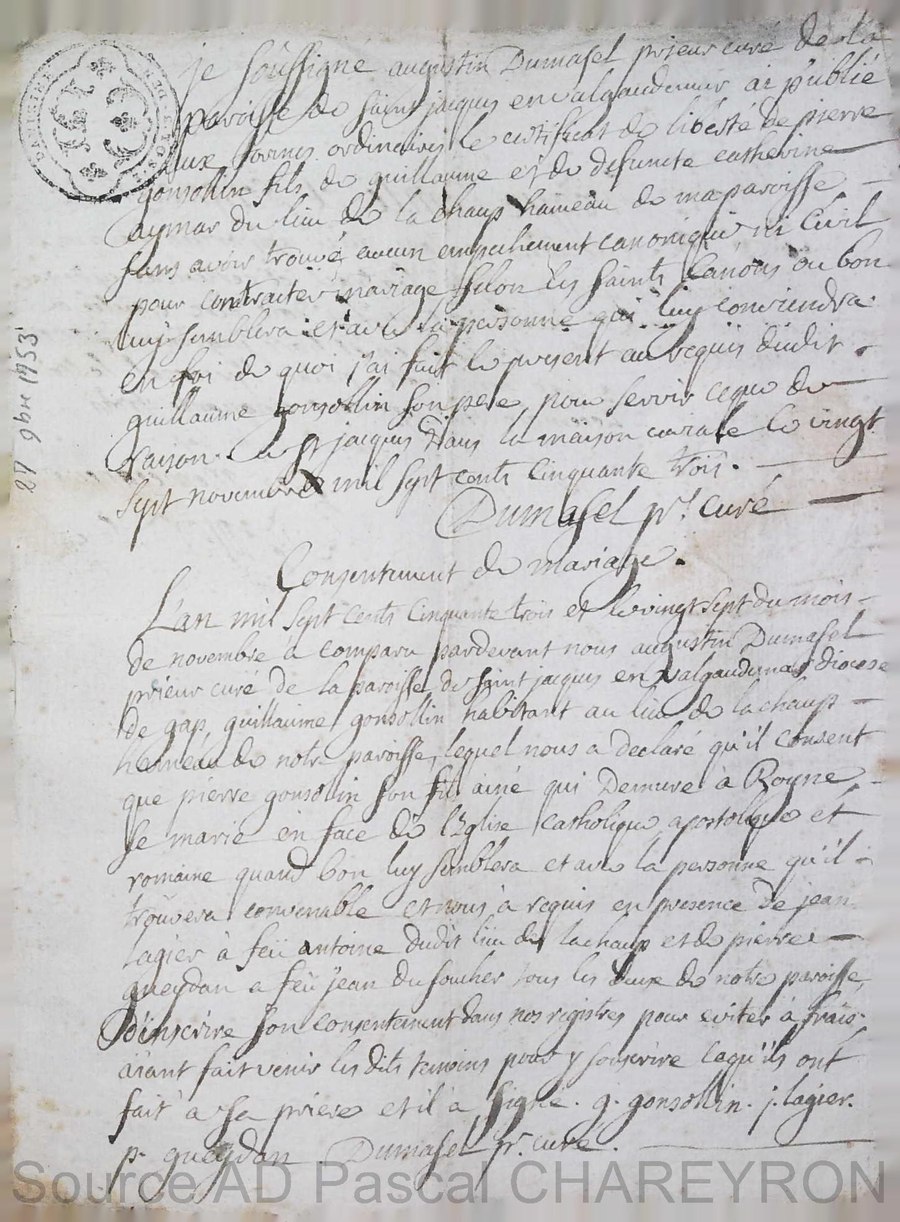 je soussigné augustin Dumasel prieur curé de la
paroisse de saint jacques en valgaudemar ai publié
aux formes ordinaires le certificat de liberté de pierre
gonsollin fils de guillaume et de defuncte catherine
aymar du lieu de la chaup hameau de ma paroisse
sans avoir trouvé aucun empechement canonique ni civil
pour contracter mariage selon les saints canons ou bon
luy semblera et avec la personne qui luy conviendra
en foi de quoi j'ai fait le present au requis dudit
guillaume gonsollin son pere, pour servir ce que de
raison. a st jacques dans la maison curiale le vingt
sept novembre mil sept cents cinquante trois.
Dumasel pr. curé
27 9bre 1753
Consentement de mariage.
L'an mil sept cents cinquante trois et le vingt sept du mois
de novembre a comparu pardevant nous augustin Dumasel
prieur curé de la paroisse de saint jacques en valgaudemar diocese
de gap, guillaume gonsollin habitant au lieu de la chaup
hameau de notre paroisse, lequel nous a declaré qu'il consent
que pierre gonsollin son fils ainé qui demeure à
se marie en face de l'Eglise catholique, apostolique et
romaine quand bon luy semblera et avec la personne qu'il
trouvera convenable et nous a requis en presence de jean
lagier à feü antoine dudit lieu de la chaup et de pierre
gueydan a feü jean du soucher tous les deux de notre paroisse,
d'inscrire son consentement dans nos registres pour eviter à frais
aiant fait venir les dits temoins pour y souscrire ce qu'ils ont
fait a sa priere et il a signé. g. gonsollin. j. lagier.
p. gueydan. Dumasel pr. curé.
Source AD Pascal CHAREYRON